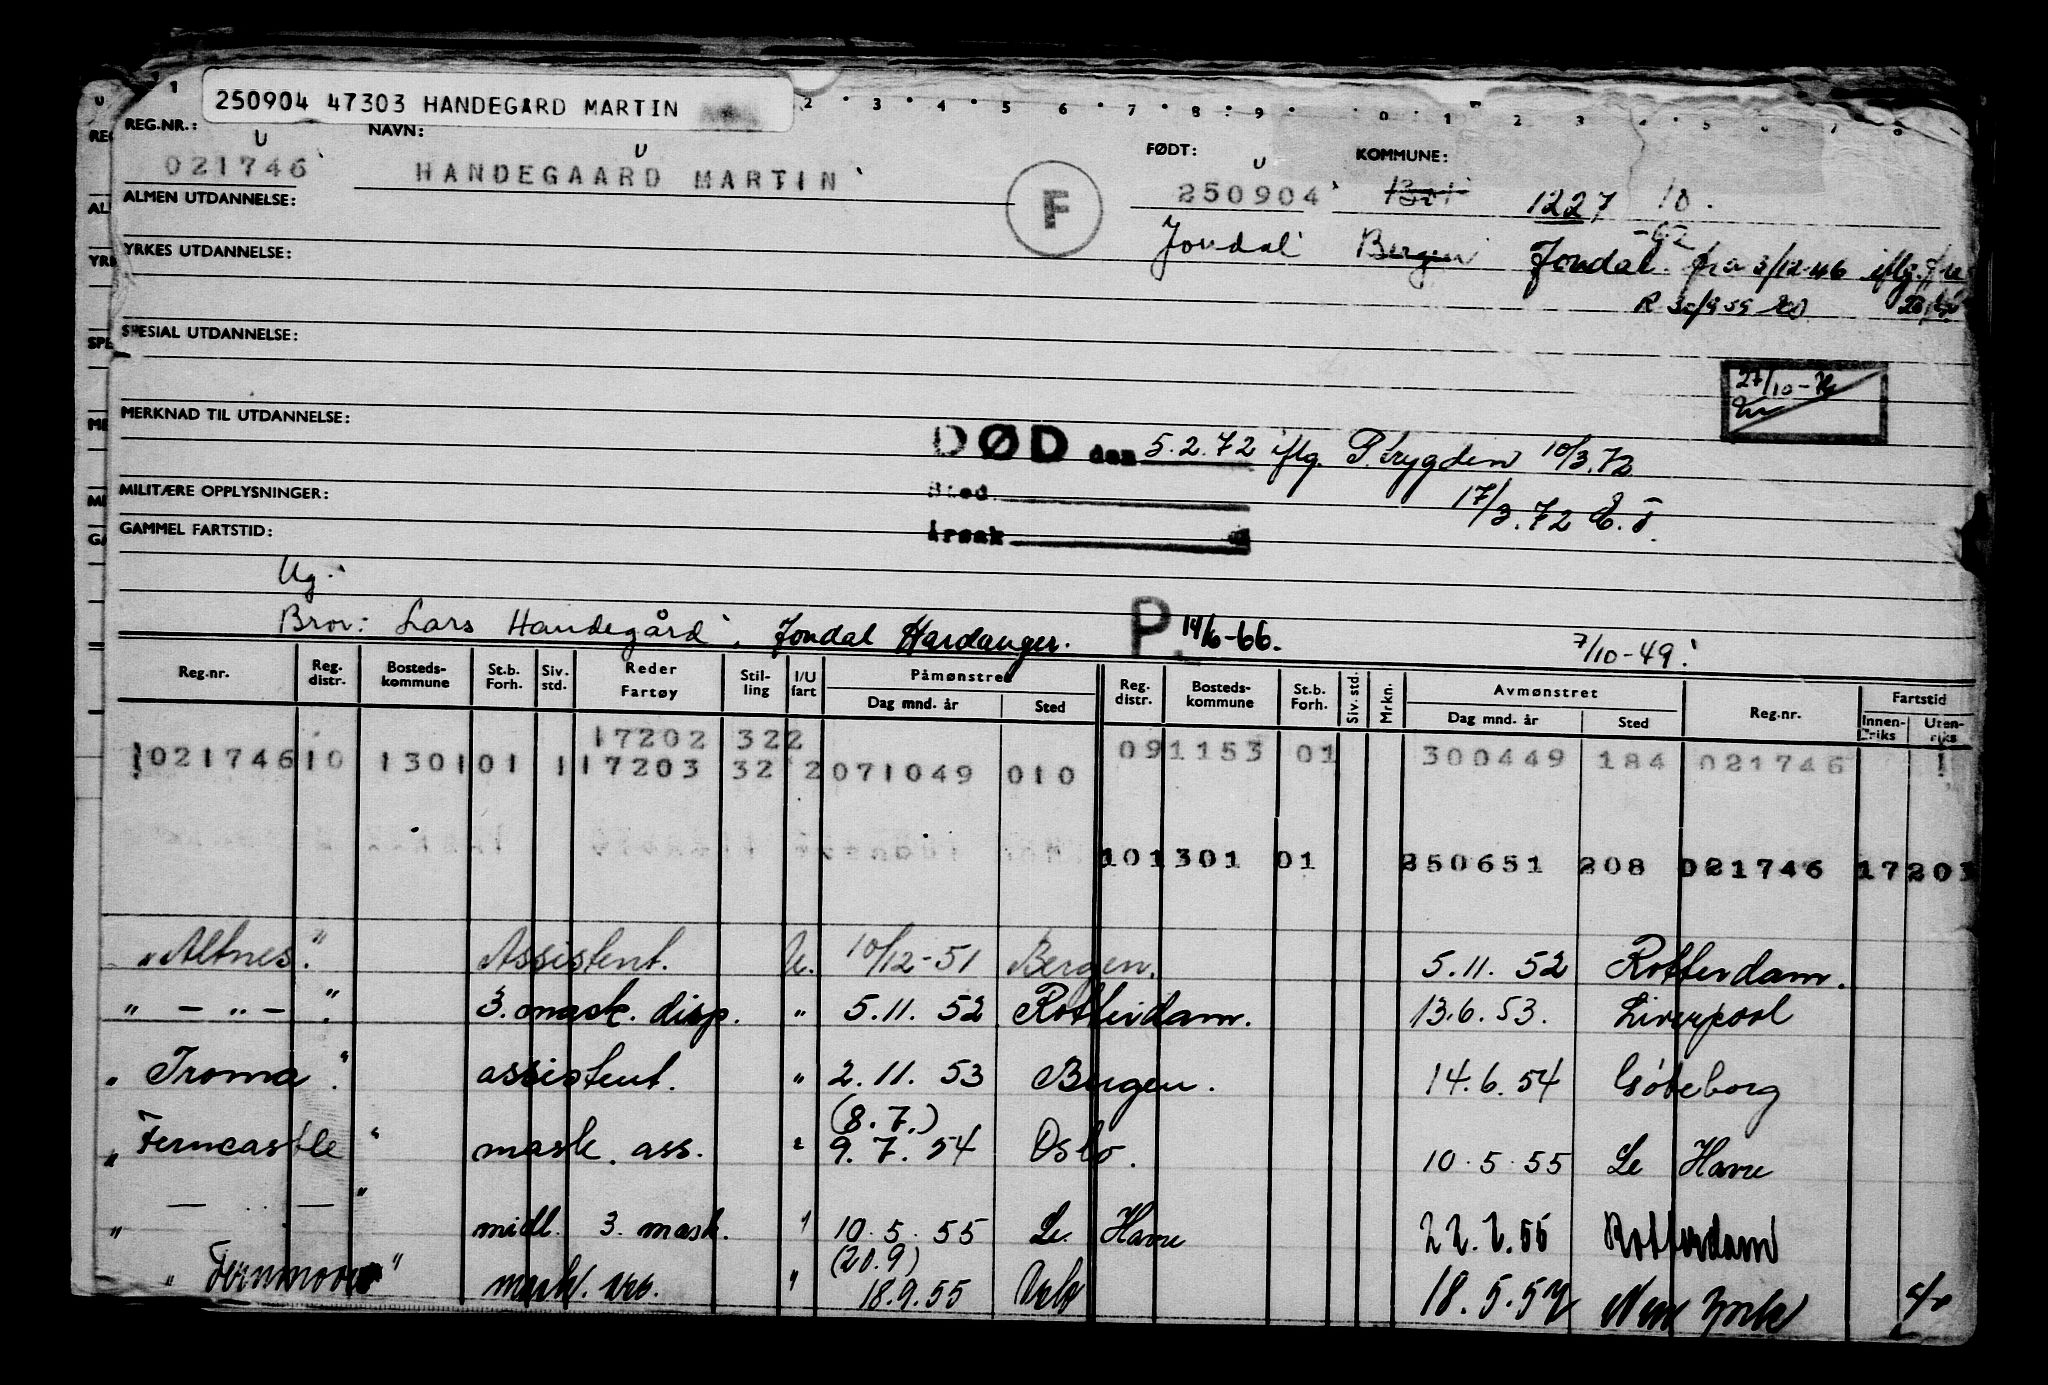 250904 47303 HANDEGARD MARTIN
REG.NR.: NAVN: FØDT: KOMMUNE:
021746 HANDEGAARD MARTIN F 250904 1301 1227 10.
ALMEN UTDANNELSE:
Jondal Bergen Jondal fra 3/12-46 iflg.
YRKES UTDANNELSE:
SPESIAL UTDANNELSE:
27/10-72
MERKNAD TIL UTDANNELSE:
DØD den 5.2.72 iflg. P.trygden 10/3.72
MILITÆRE OPPLYSNINGER:
Sted
17/3.72
GAMMEL FARTSTID:
Årsak
Ug.
Bror: Lars Handegård, Jondal Hardanger. P. 14/6-66. 7/10-49.
Reg.nr. Reg. distr. Bosteds-kommune St.b. Forh. Siv. std. Reder Fartøy Stil-ling I/U fart Påmønstret Dag mnd. år Sted Reg. distr. Bosteds-kommune St.b. Forh. Siv. std. Mrkn. Avmønstret Dag mnd. år Sted Reg.nr. Fartstid Innen-riks Uten-riks
17202 322
021746 10 1301 01 1 17203 32 2 071049 010 091153 01 300449 184 021746
101301 01 250651 208 021746 17203
"Altnes". Assistent. U. 10/12-51 Bergen. 5.11. 52 Rotterdam.
" - " - ". 3. mask. disp. " 5.11. 52 Rotterdam. 13.6.53. Liverpool
"Troma". assistent. " 2.11. 53 Bergen. 14.6.54 Göteborg
(8.7.)
"Ferncastle" mask. ass. " 9.7.54 Oslo. 10.5.55 Le Havre
" — " — " midl. 3. mask. " 10.5.55 Le Havre 22.7.55 Rotterdam
(20.9)
"Fernmoor" mask. ass. " 18.9.55 Oslo 18.5.57 New York